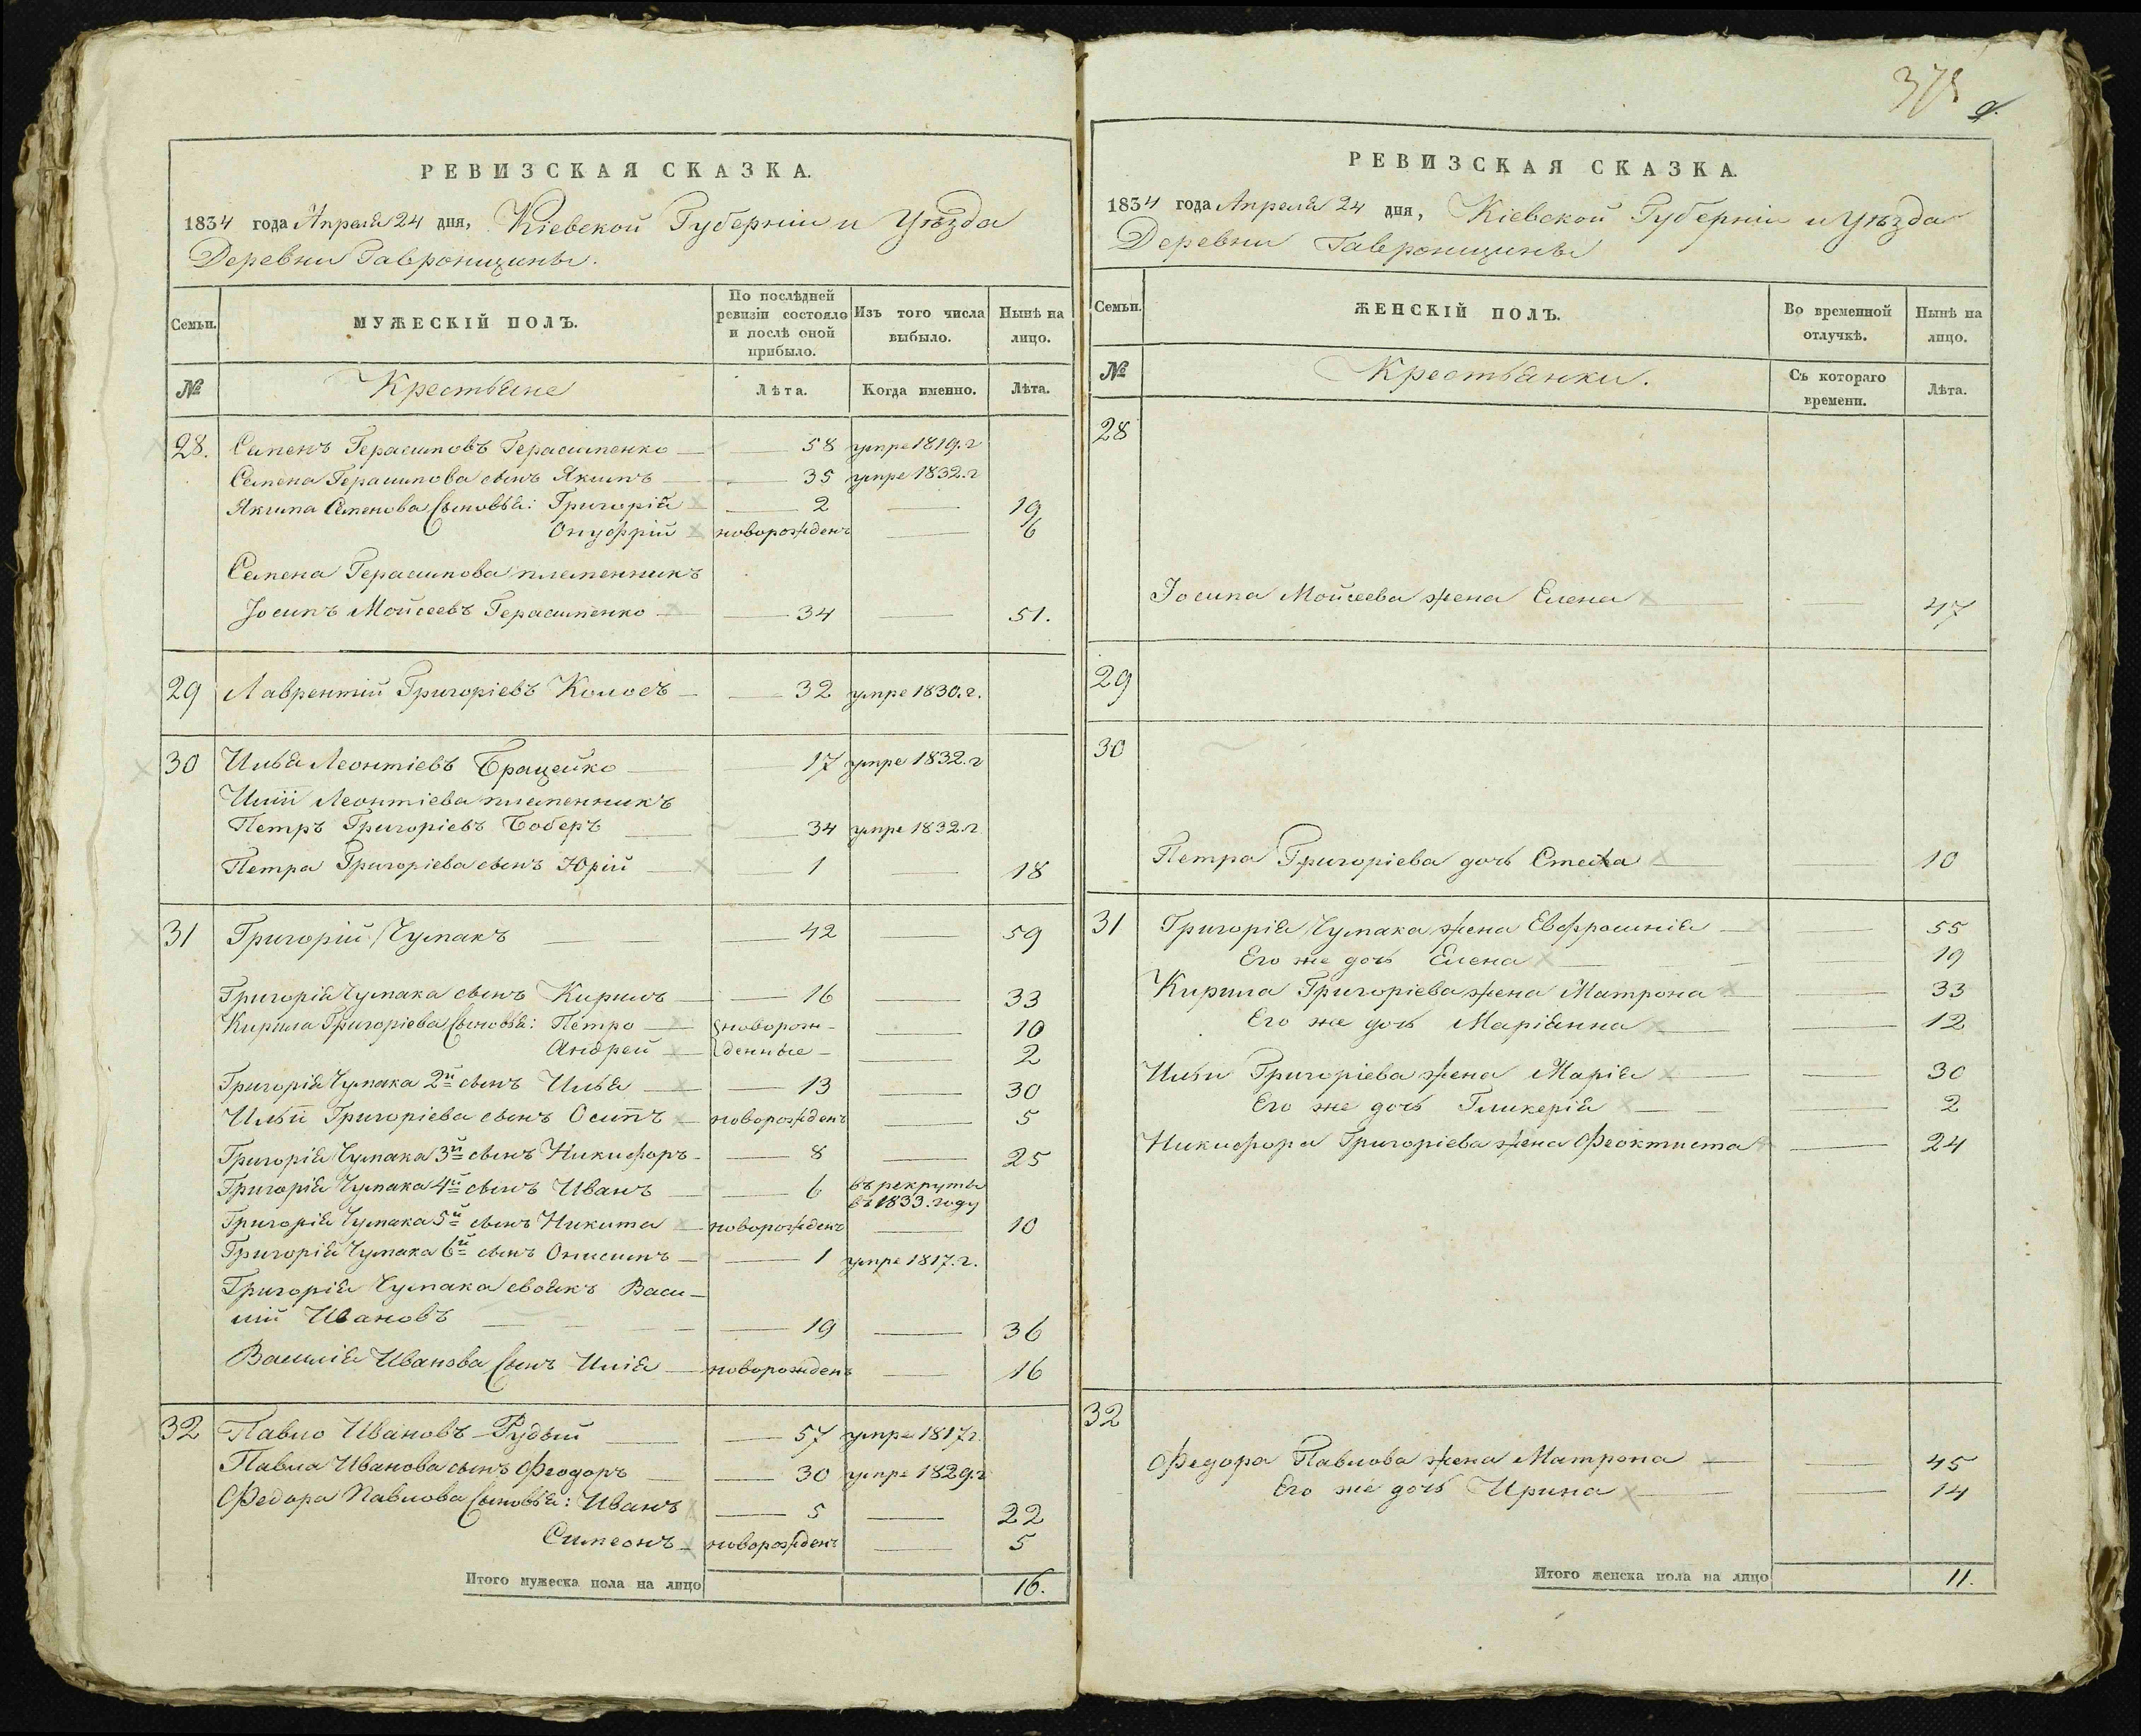 РЕВИЗСКАЯ СКАЗКА.
1834 года Апреля 24 дня, Кіевской Губерніи и Уѣзда
Деревни Гавронщины.
Семьи.
МУЖЕСКІЙ ПОЛЪ.
По послѣдней
ревизіи состояло
и послѣ оной
прибыло.
Изъ того числа
выбыло.
Нынѣ на
лицо.
№
Крестьяне
Лѣта.
Когда именно.
Лѣта.
28. Семенъ Герасимовъ Герасименко — 58 умре 1819. г
Семена Герасимова сынъ Якимъ — 35 умре 1832. г
Якима Семенова Сыновья: Григорій — 2 — 19
Онуфрій новорожденъ — 6
Семена Герасимова племенникъ
Іосипъ Мойсеевъ Герасименко — 34 — 51.
29 Лаврентій Григоріевъ Колосъ — 32 умре 1830. г.
30 Илья Леонтіевъ Брацейко — 17 умре 1832. г
Иліи Леонтіева племенникъ
Петръ Григоріевъ Боберъ — 34 умре 1832. г
Петра Григоріева сынъ Юрій — 1 — 18
31 Григорій Чумакъ — 42 — 59
Григорія Чумака сынъ Кирилъ — 16 — 33
Кирила Григоріева Сыновья: Петро — новорож- — 10
Андрей — денные — — 2
Григорія Чумака 2й сынъ Илья — 13 — 30
Ильи Григоріева сынъ Осипъ — новорожденъ — 5
Григорія Чумака 3й сынъ Никифоръ — 8 — 25
Григорія Чумака 4й сынъ Иванъ — 6 въ рекруты
въ 1833. году
Григорія Чумака 5й сынъ Никита — новорожденъ — 10
Григорія Чумака 6й сынъ Онисимъ — 1 умре 1817. г.
Григорія Чумака своякъ Васи-
лій Ивановъ — 19 — 36
Василія Иванова Сынъ Илія — новорожденъ — 16
32 Павло Ивановъ Рудый — 57 умре 1817 г.
Павла Иванова сынъ Феодоръ — 30 умре 1829. г
Федора Павлова Сыновья: Иванъ — 5 — 22
Симеонъ — новорожденъ — 5
Итого мужеска пола на лицо 16.
РЕВИЗСКАЯ СКАЗКА.
1834 года Апреля 24 дня, Кіевской Губерніи и Уѣзда
Деревни Гавронщины
Семьи.
ЖЕНСКІЙ ПОЛЪ.
Во временной
отлучкѣ.
Нынѣ на
лицо.
№
Крестьянки.
Съ котораго
времени.
Лѣта.
28
Іосипа Мойсеева жена Елена — — 47
29
30
Петра Григоріева дочь Стеха — — 10
31 Григорія Чумака жена Евфросинія — — 55
Его же дочь Елена — — 19
Кирила Григоріева жена Матрона — — 33
Его же дочь Маріанна — — 12
Ильи Григоріева жена Марія — — 30
Его же дочь Гликерія — — 2
Никифора Григоріева жена Феоктиста — 24
32
Федора Павлова жена Матрона — — 45
Его же дочь Ирина — — 14
Итого женска пола на лицо 11.